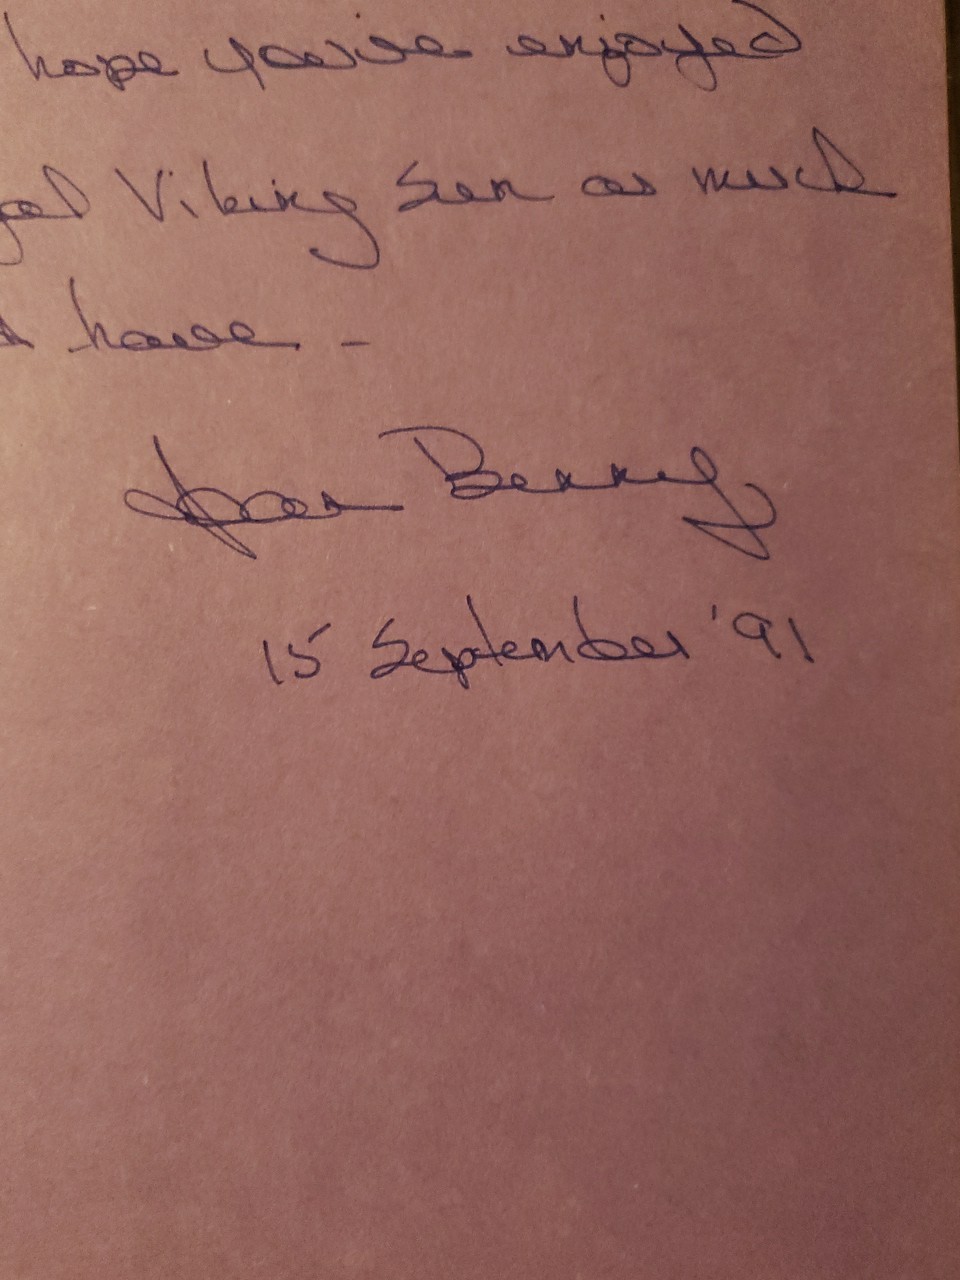 hope you've enjoyed
Viking Sun as much
have -
Joan Berry
15 September '91